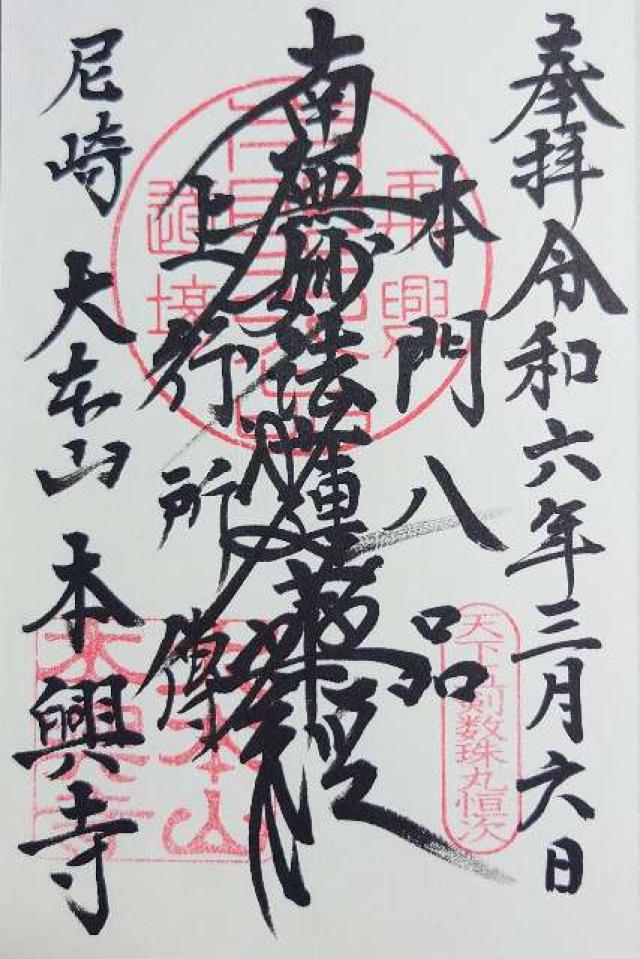 奉拝 令和六年三月六日
本門八品
南無妙法蓮華経
上行所傳
尼崎 大本山 本興寺
再興
道場
天下五剣数珠丸恒次
大本山
本興寺